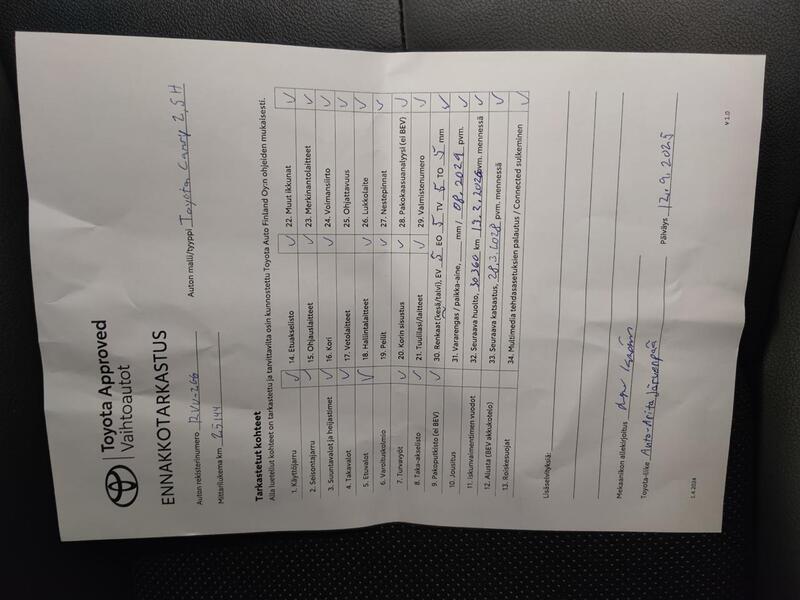 Toyota Approved
Vaihtoautot
ENNAKKOTARKASTUS
Auton rekisterinumero RVV-266 Auton malli/tyyppi Toyota Camry 2,5H
Mittarilukema km 25144
Tarkastetut kohteet
Alla luetellut kohteet on tarkastettu ja tarvittavilta osin kunnostettu Toyota Auto Finland Oy:n ohjeiden mukaisesti.
1. Käyttöjarru ✓ 14. Etuakselisto ✓ 22. Muut ikkunat ✓
2. Seisontajarru ✓ 15. Ohjauslaitteet ✓ 23. Merkinantolaitteet ✓
3. Suuntavalot ja heijastimet ✓ 16. Kori ✓ 24. Voimansiirto ✓
4. Takavalot ✓ 17. Vetolaitteet ✓ 25. Ohjattavuus ✓
5. Etuvalot ✓ 18. Hallintalaitteet ✓ 26. Lukkolaite ✓
6. Varoituskolmio 19. Peilit ✓ 27. Nestepinnat ✓
7. Turvavyöt ✓ 20. Korin sisustus ✓ 28. Pakokaasuanalyysi (ei BEV) ✓
8. Taka-akselisto ✓ 21. Tuulilasi/laitteet ✓ 29. Valmistenumero ✓
9. Pakoputkisto (ei BEV) ✓ 30. Renkaat (kesä/talvi), EV 5 EO 5 TV 5 TO 5 mm ✓
10. Jousitus 31. Vararengas / paikka-aine, mm / 08.2029 pvm. ✓
11. Iskunvaimentimen vuodot 32. Seuraava huolto, 30360 km 13.2.2026 pvm. mennessä ✓
12. Alusta (BEV akkukotelo) 33. Seuraava katsastus, 28.3.2028 pvm. mennessä ✓
13. Roiskesuojat 34. Multimedia tehdasasetuksien palautus / Connected sulkeminen ✓
Lisäselvityksiä:
Mekaanikon allekirjoitus
Toyota-liike Auto-Arita Järvenpää Päiväys 12.9.2025
1.4.2024 V 1.0